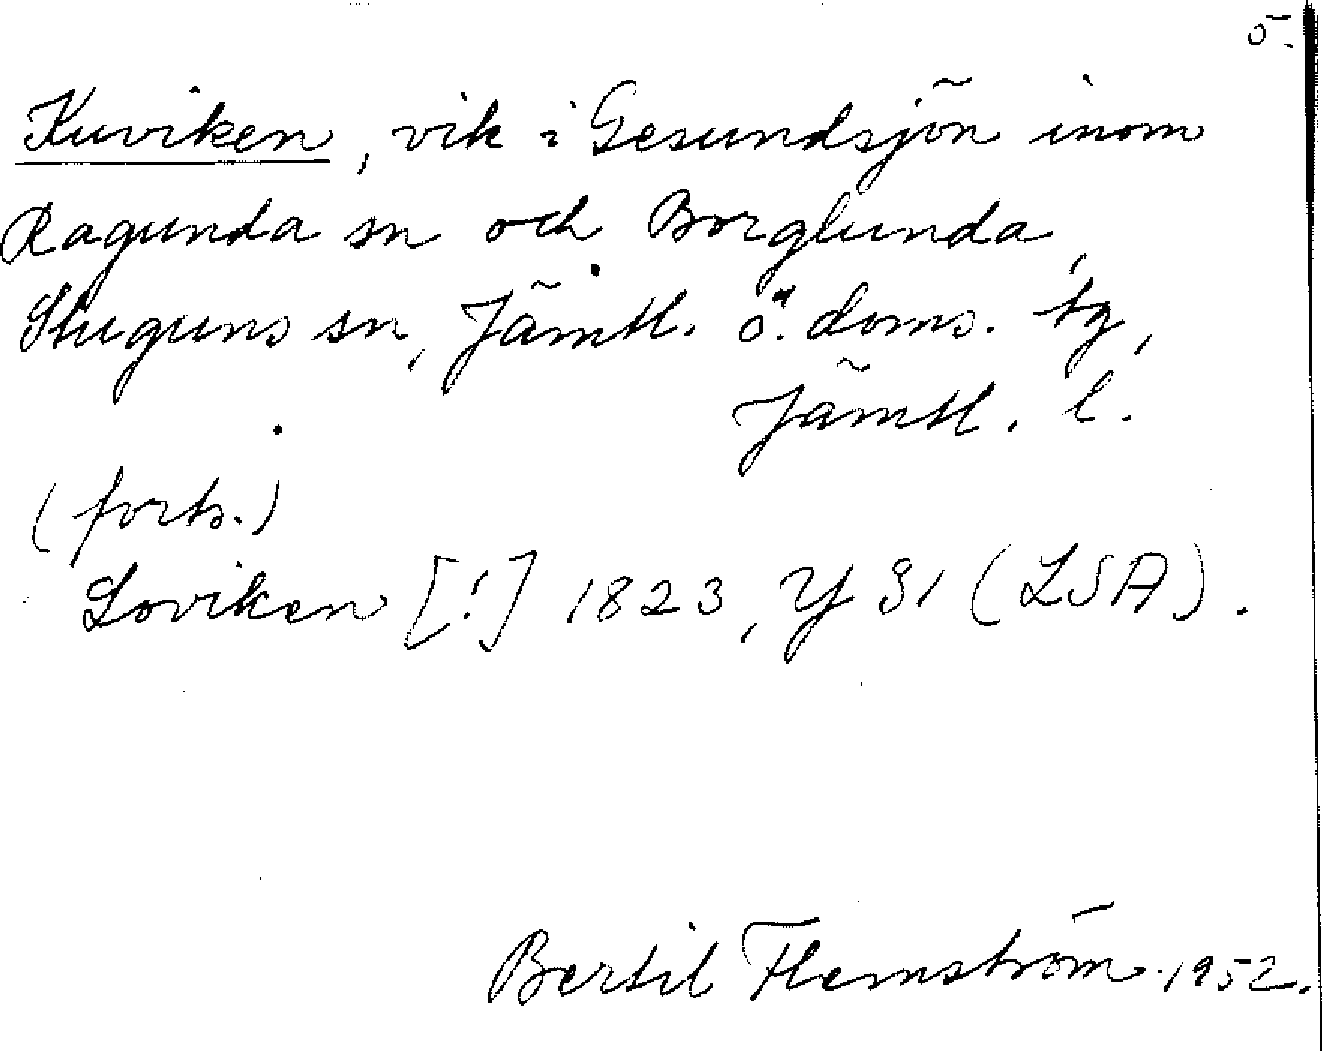 5.
Kuviken, vik i Gesundsjön inom
Ragunda sn och Borglunda,
Stuguns sn, Jämtl. ö. doms. tg,
Jämtl. l.
(forts.)
Loviken [!] 1823, Y 31 (LSA).
Bertil Flemström 1952.